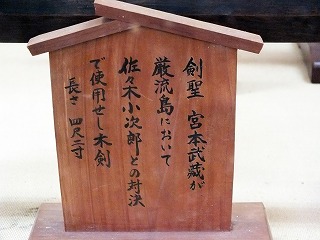 剣聖 宮本武蔵が
厳流島において
佐々木小次郎との対決
で使用せし木剣
長さ 四尺二寸